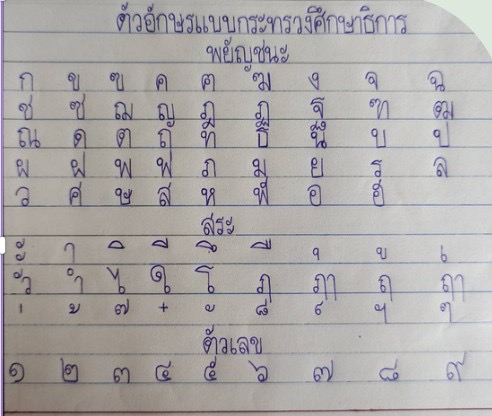 ตัวอักษรแบบกระทรวงศึกษาธิการ
พยัญชนะ
ก ข ฃ ค ฅ ฆ ง จ ฉ
ช ซ ฌ ญ ฎ ฏ ฐ ฑ ฒ
ณ ด ต ถ ท ธ น บ ป
ผ ฝ พ ฟ ภ ม ย ร ล
ว ศ ษ ส ห ฬ อ ฮ
สระ
ะ า ิ ี ึ ื ุ ู เ
ัว ำ ไ ใ โ ฦ ฦา ฤ ฤา
่ ้ ๊ ๋ ็ ์ ฯ ๆ
ตัวเลข
๑ ๒ ๓ ๔ ๕ ๖ ๗ ๘ ๙